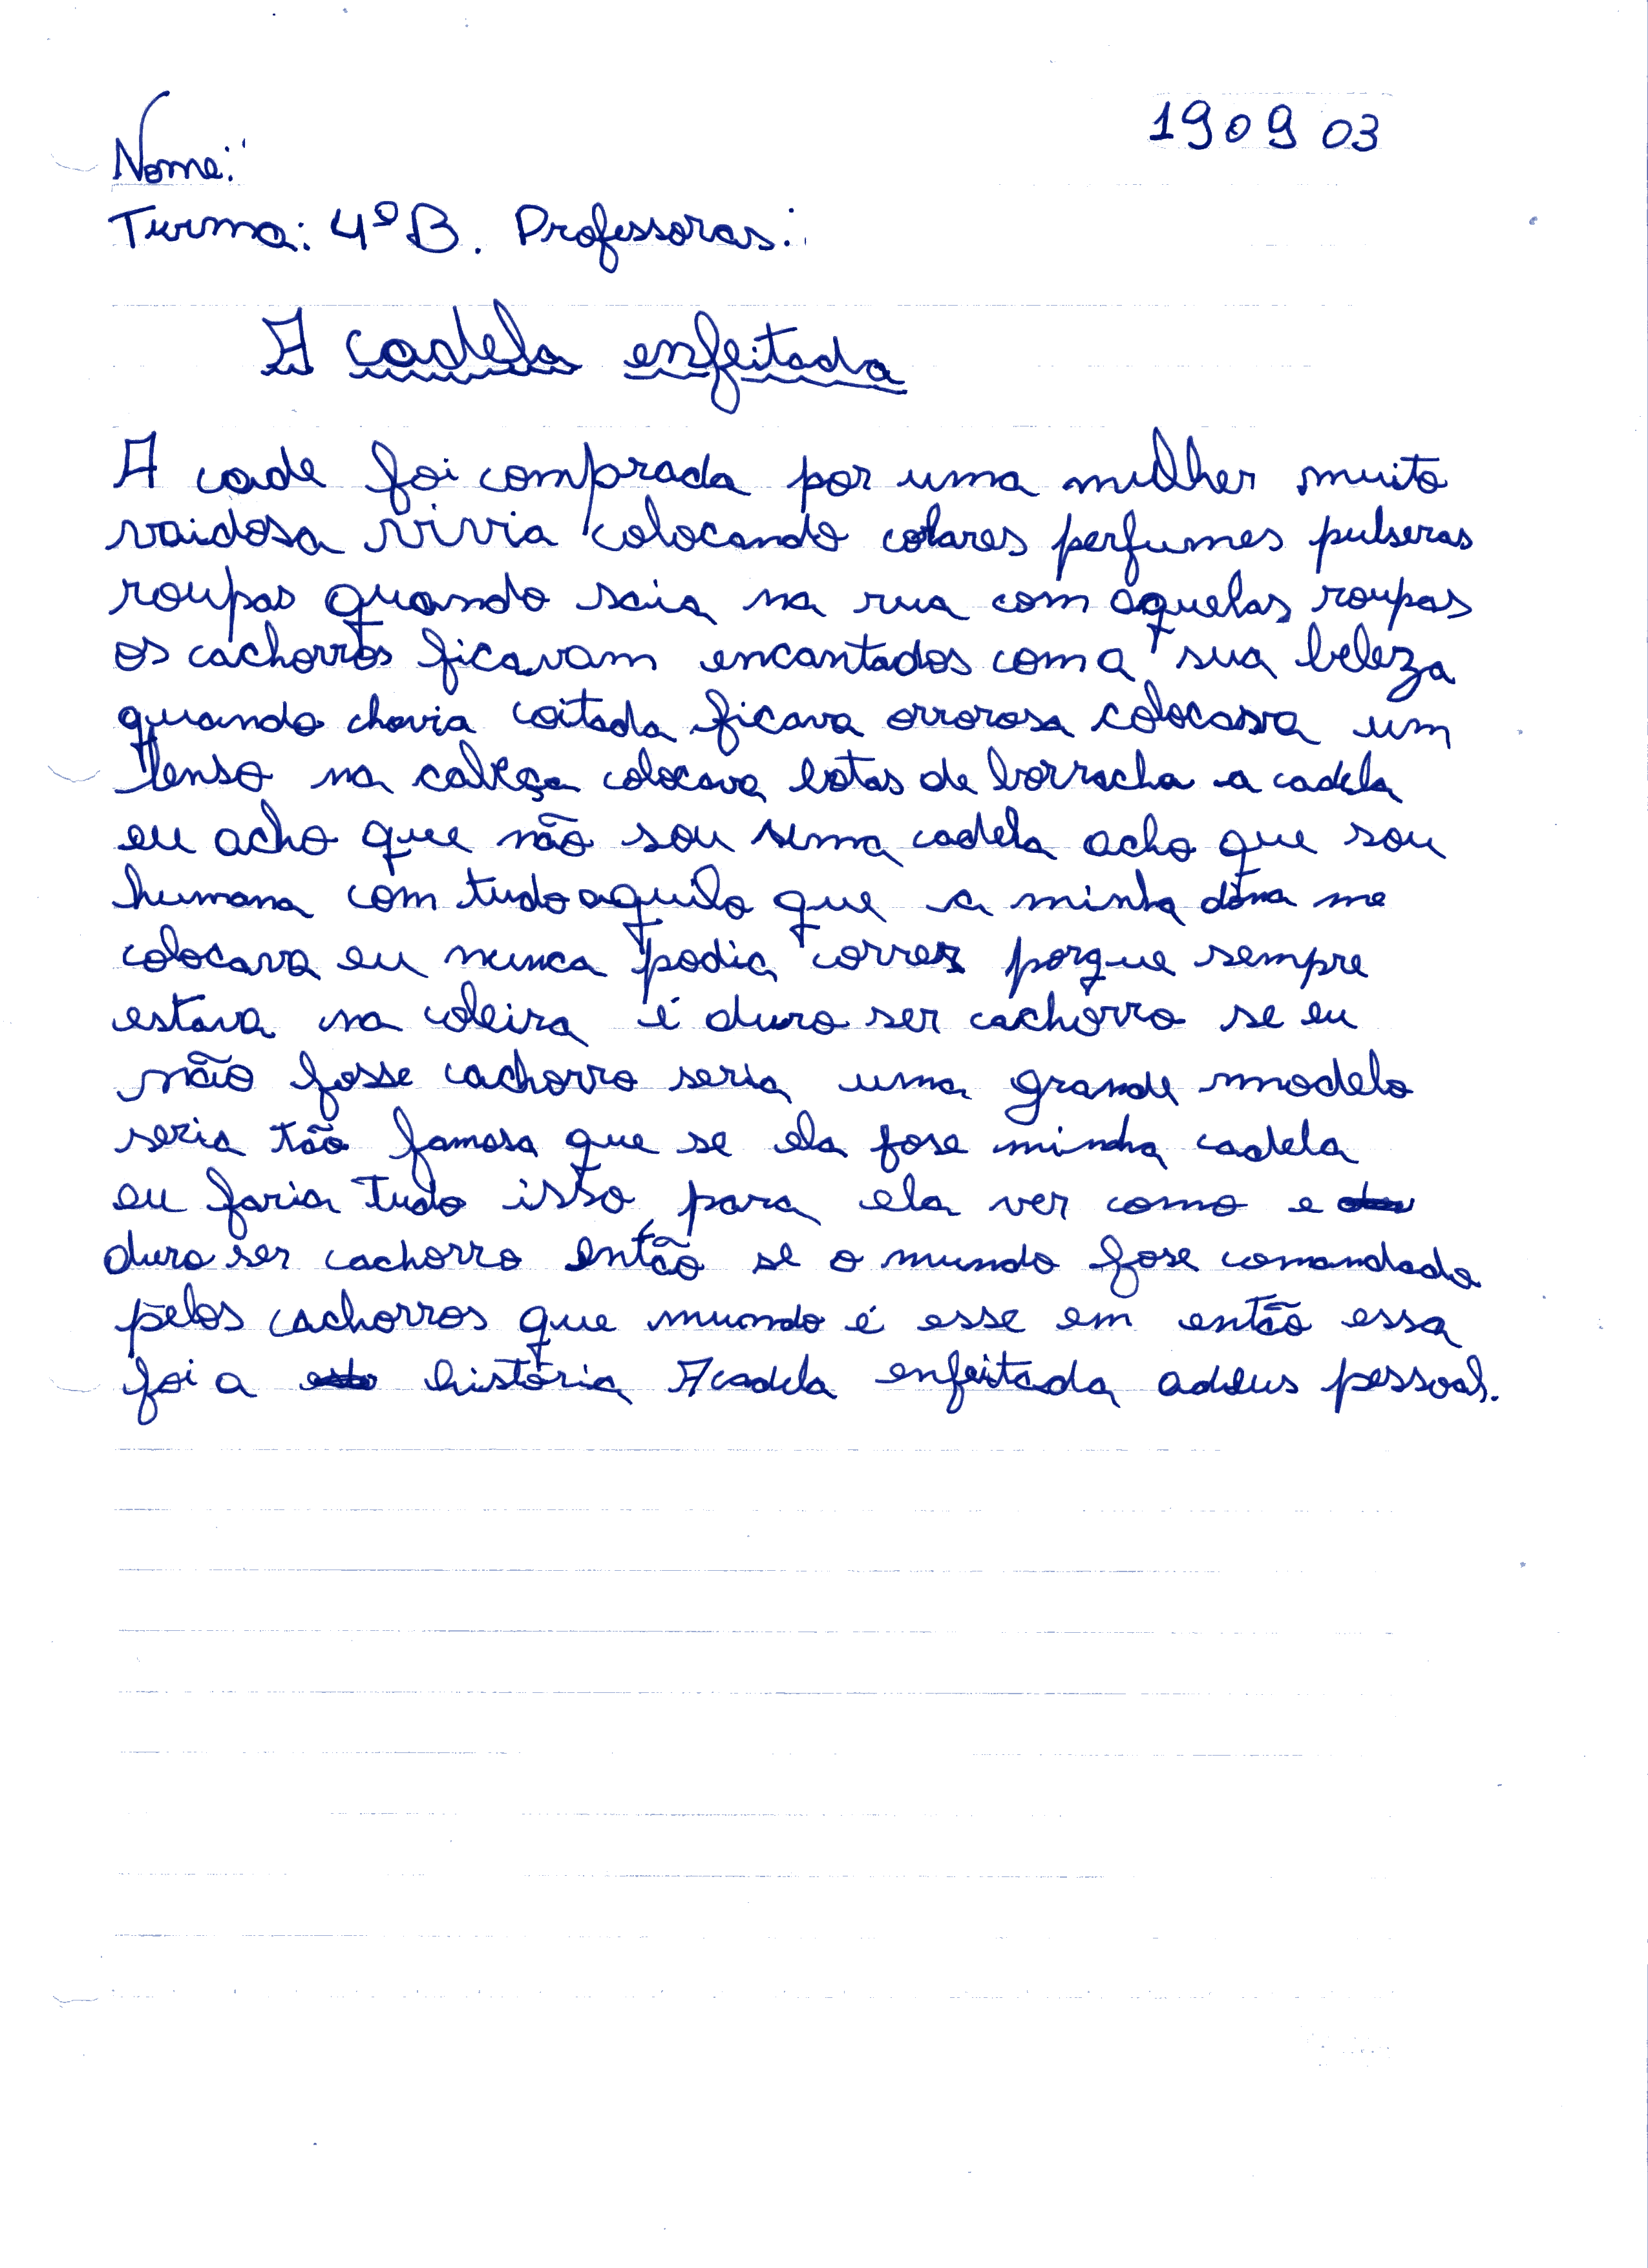 190903
Nome:
Turma: 4º B. Professoras:
A cadela enfeitada
A cade foi comprada por uma mulher muito
vaidosa vivia colocando colares perfumes pulseras
roupas quando saia na rua com aquelas roupas
os cachorros ficavam encantados com a sua beleza
quando chovia coitada ficava orrorosa colocava um
lenso na cabeça colocava botas de borracha a cadela
eu acho que não sou uma cadela acho que sou
humana com tudo aquilo que a minha dona me
colocava eu nunca podia correr porque sempre
estava na coleira é duro ser cachorro se eu
não fosse cachorro seria uma grande modelo
seria tão famosa que se ela fose minha cadela
eu faria tudo isso para ela ver como e
duro ser cachorro então se o mundo fose comandado
pelos cachorros que mundo é esse em então essa
foi a história A cadela enfeitada adeus pessoal.